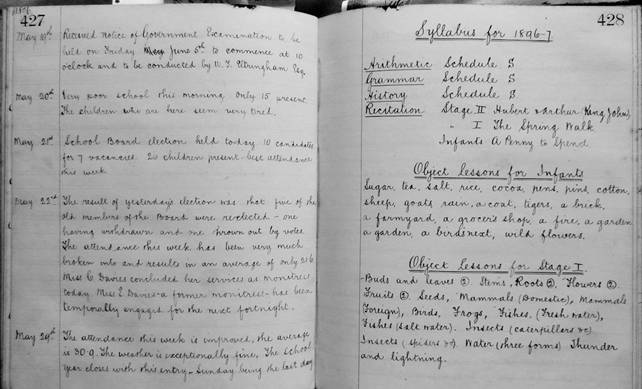 1896.
427
May 19th Received Notice of Government Examination to be
held on Friday May June 5th to commence at 10
o'clock and to be conducted by W. J. Stringham Esq.
May 20th Very poor school this morning only 15 present
The children who are here seem very tired.
May 21st School Board election held today 10 candidates
for 7 vacancies. 20 children present - best attendance
this week
May 22nd The result of yesterday's election was that five of the
old members of the Board were reelected - one
having withdrawn and one thrown out by votes
The attendance this week has been very much
broken into and results in an average of only 21.6
Miss C Davies concluded her services as monitress
today Miss E Davies - a former monitress - has been
temporally engaged for the next fortnight.
May 29th The attendance this week is improved, the average
is 30.9. The weather is exceptionally fine. The school
year closes with this entry - Sunday being the last day
428
Syllabus for 1896-7
Arithmetic Schedule S
Grammar Schedule S
History Schedule S
Recitation Stage II Hubert & Arthur (King John)
" I The Spring Walk
Infants A Penny to Spend
Object lessons for Infants
Sugar, tea, salt, rice, cocoa, pens, pins, cotton,
sheep, goats, rain, a coat, tigers, a brick,
a farmyard, a grocer's shop, a fire, a garden
a garden, a birdsnest, wild flowers.
Object lessons for Stage I
Buds and leaves (2). Stems, Roots (2), Flowers (2).
Fruits (2), Seeds, Mammals (Domestic), Mammals
(Foreign), Birds, Frogs, Fishes, (Fresh water),
Fishes (salt water). Insects (caterpillars &c)
Insects (spiders &c). Water (three forms) Thunder
and lightning.